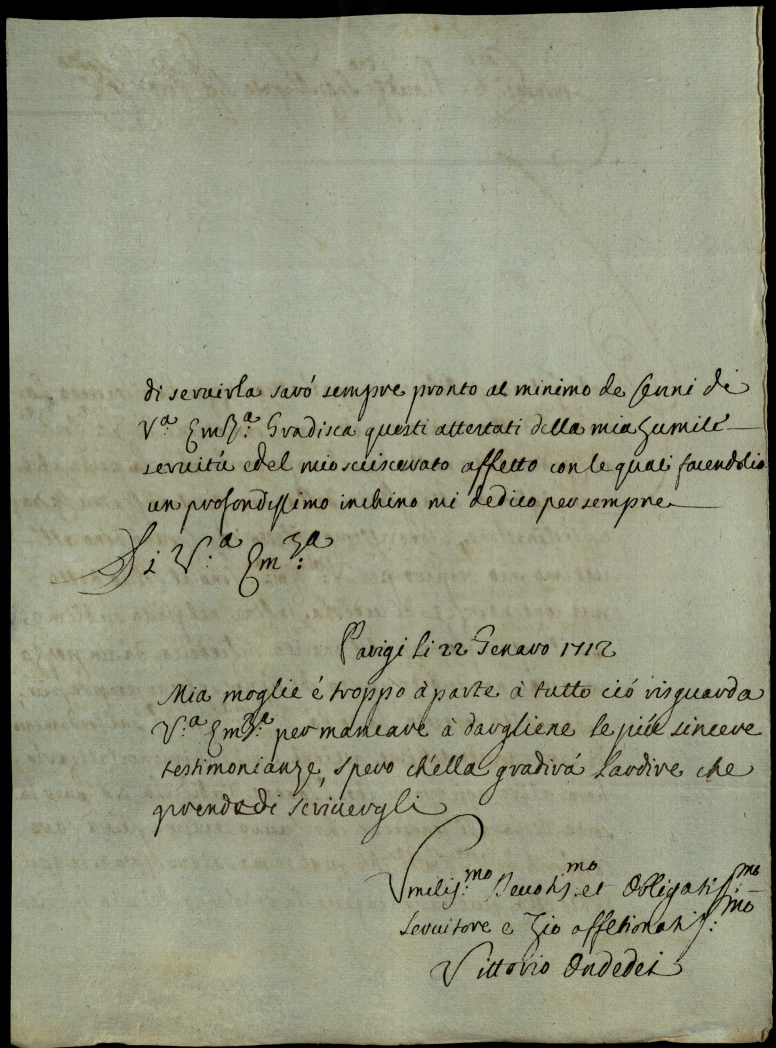 di seruirla saró sempre pronto al minimo de Cenni di
V.ª Em.zª Gradisca questi attestati della mia humile
seruitú e del mio suiscerato affetto con le quali facendole
un profondissimo inchino mi dedico per sempre
Di V.ª Em.zª
Parigi li 22 Genaro 1712
Mia moglie é troppo à parte à tutto ció risguarda
V.ª Em.zª per mancare à dargliene le piúe sincere
testimonianze, spero ch'ella gradirá l'ardire che
prende di scriuergli
Vmiliss.mo Deuotis.mo et Obligatiss.mo
Seruitore e Zio affetionatis.mo
Vittorio Ondedei